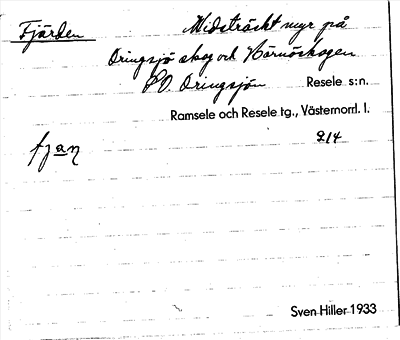 Fjärden
Midsträckt myr på
Öringsjö skog och Hörnöskogen
SO. Öringsjön Resele s:n.
Ramsele och Resele tg., Västernorrl. l.
fjan 214
Sven Hiller 1933